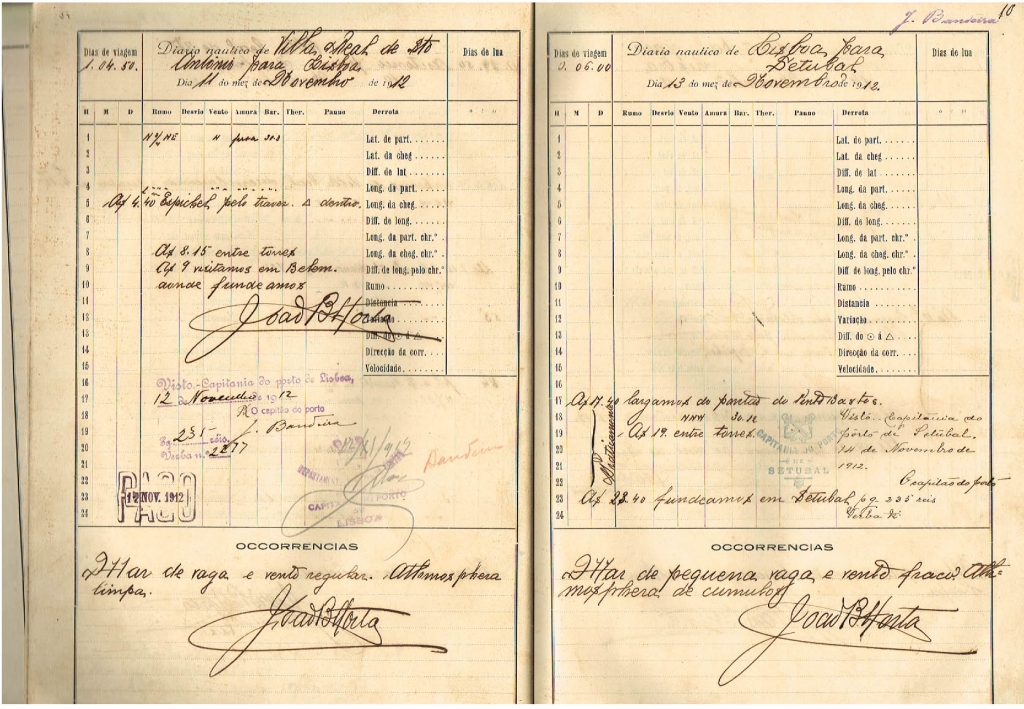 Dias de viagem
1. 04. 50.
Diario nautico de Villa Real de Sto
Antonio para Lisboa
Dia 11 do mez de Novembro de 1912
Dias de lua
H M D Rumo Desvio Vento Amura Bar. Ther. Panno Derrota
1
2
3
4
5
6
7
8
9
10
11
12
13
14
15
16
17
18
19
20
21
22
23
24
N ¼ NE N proa 30.3
Az 4.40 Espichel pelo travez. Δ dentro.
Az 8.15 entre torres
Az 9 visitamos em Belem.
aonde fundeamos
João B Horta
Lat. de part.
Lat. da cheg
Diff. de lat
Long. de part.
Long. da cheg.
Diff. de long.
Long. da part. chr.º
Long. da cheg. chr.º
Diff. de long. pelo chr.º
Rumo
Distancia
Variação
Diff. de ⊙ á Δ
Direcção da corr.
Velocidade
Visto.-Capitania do porto de Lisboa,
12 de Novembro de 1912
O capitão do porto
J. Bandeira
Pg. 235 réis.
Verba n.º 2277
PAGO
12 NOV. 1912
12/XI/912
DEPARTAMENTO
CAPITANIA DO PORTO
LISBOA
Bandeira
OCCORRENCIAS
Mar de vaga e vento regular. Athmosphera
limpa.
João B Horta
J. Bandeira
10
Dias de viagem
0. 06. 00
Diario nautico de Lisboa para
Setubal
Dia 13 do mez de Novembro de 1912.
Dias de lua
H M D Rumo Desvio Vento Amura Bar. Ther. Panno Derrota
1
2
3
4
5
6
7
8
9
10
11
12
13
14
15
16
17
18
19
20
21
22
23
24
Lat. de part.
Lat. da cheg
Diff. de lat
Long. da part
Long. da cheg.
Diff. de long.
Long. da part. chr.º
Long. da cheg. chr.º
Diff. de long. pelo chr.º
Rumo
Distancia
Variação
Diff. de ⊙ á Δ
Direcção da corr.
Velocidade
Az 17.40 largamos do pontão do Vento Bastos.
NNW 30.12
Az 19. entre torres
Az 23.40 fundeamos em Setubal
CAPITANIA DO PORTO
DE
SETUBAL
Visto. Capitania do
porto de Setubal.
14 de Novembro de
1912.
O capitão do porto
pg. 235 reis
OCCORRENCIAS
Mar de pequena vaga e vento fraco. Ath-
mosphera de cumulos
João B. Horta